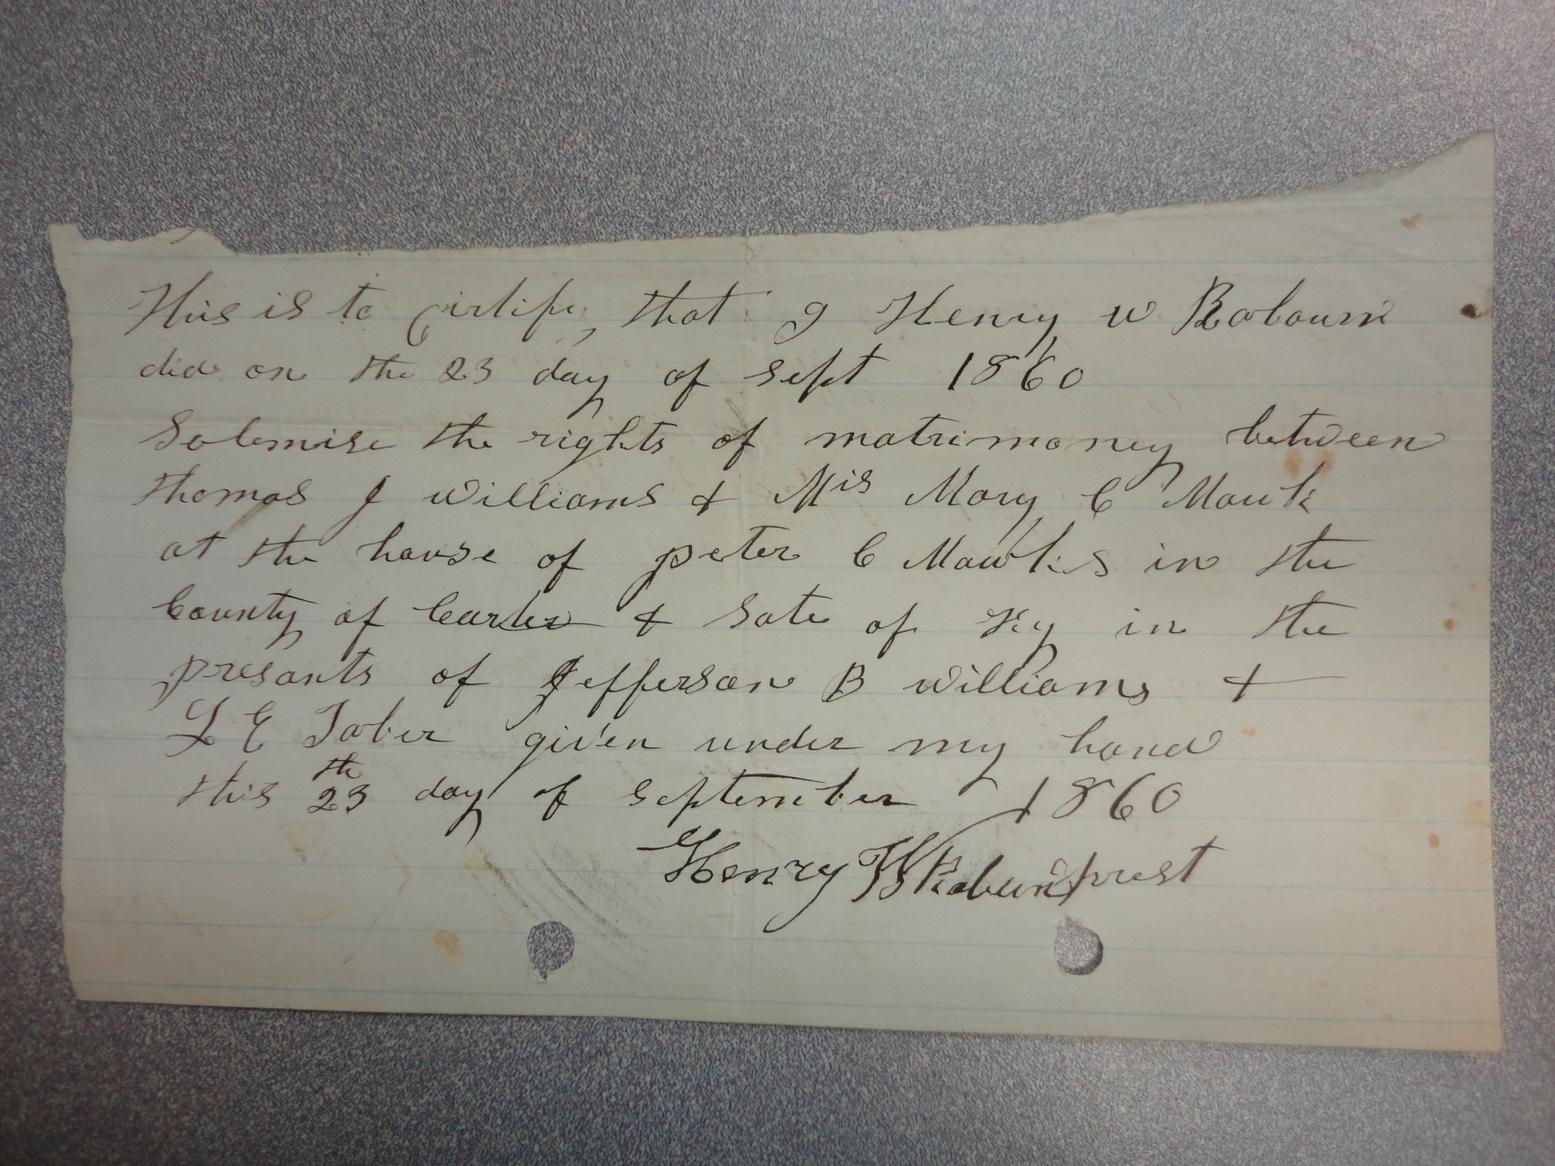 This is to Cirtify, that I Henry W Rabourn
did on the 23 day of Sept 1860
Solemise the rights of matrimoney between
Thomas J Williams & Mis Mary C Mauk
at the house of peter C Mawks in the
County of Carter & Sate of Ky in the
presants of Jefferson B Williams &
L E Tober given under my hand
this 23th day of September 1860
Henry W Raburn